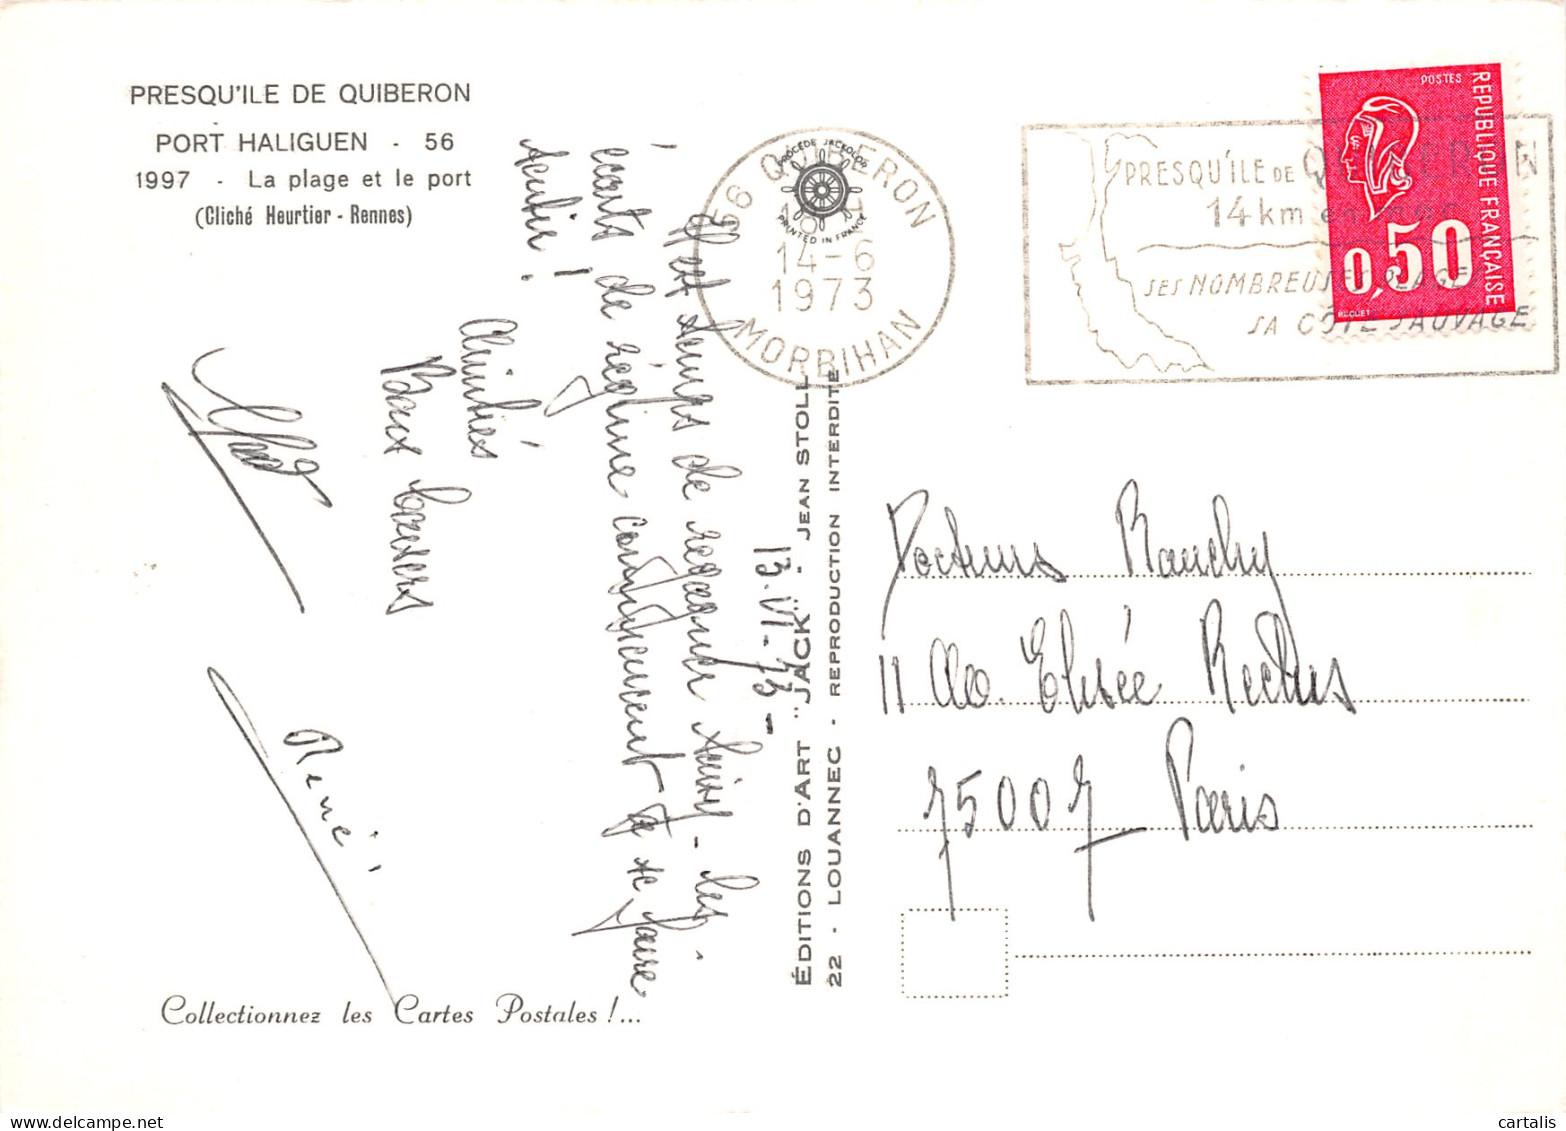 PRESQU'ILE DE QUIBERON
PORT HALIGUEN - 56
1997 - La plage et le port
(Cliché Heurtier - Rennes)
13.VI-73-
Il est temps de regagner Paris - les
écarts de régime commencent à se faire
sentir !
Amitiés
Bons baisers
René
Collectionnez les Cartes Postales !...
ÉDITIONS D'ART "JACK" - JEAN STOLL
22 - LOUANNEC - REPRODUCTION INTERDITE
PROCÉDÉ JACKOLOR
PRINTED IN FRANCE
56 QUIBERON
14-6
1973
MORBIHAN
PRESQU'ÎLE DE QUIBERON
14 km en mer
SES NOMBREUSES PLAGES
SA CÔTE SAUVAGE
POSTES
REPUBLIQUE FRANÇAISE
0,50
BEQUET
Docteurs Rauchy
11 Allée Elisée Reclus
75007 Paris